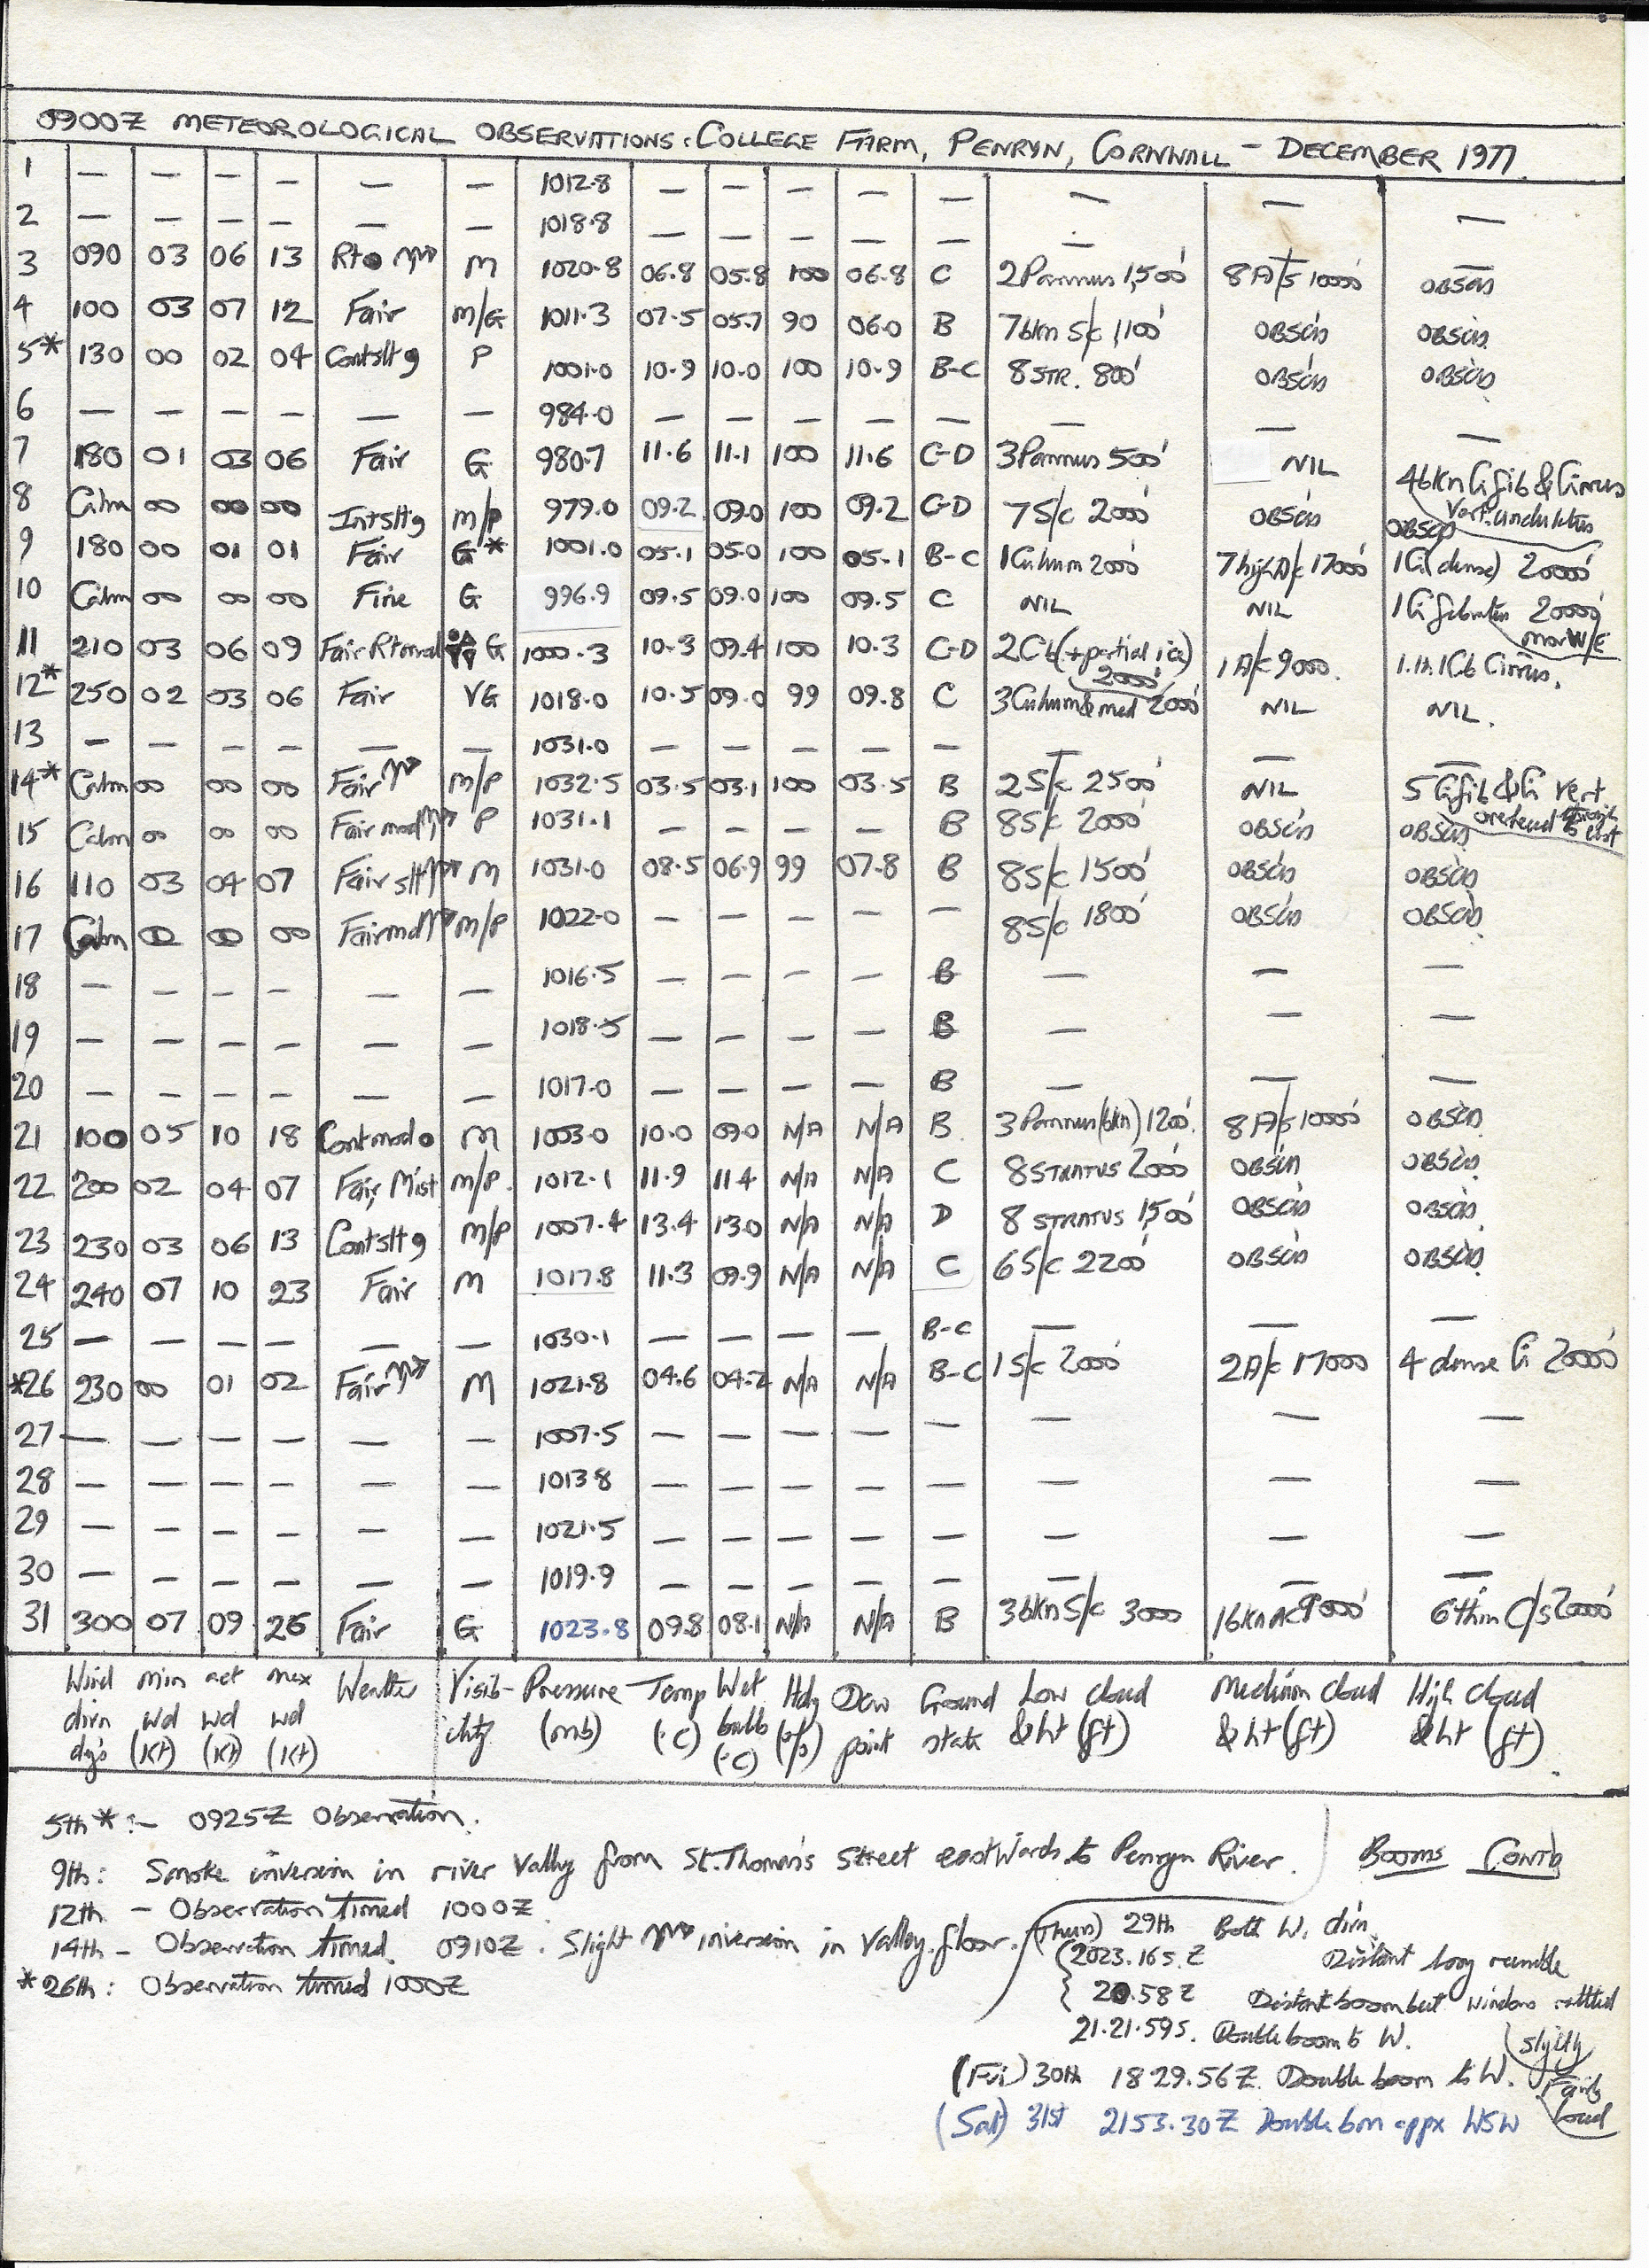 0900Z METEOROLOGICAL OBSERVATIONS: COLLEGE FARM, PENRYN, CORNWALL - DECEMBER 1977.
1 — — — — — — 1012.8 — — — — — — — —
2 — — — — — — 1018.8 — — — — — — — —
3 090 03 06 13 M 1020.8 06.8 05.8 100 06.8 C 2 Pannus 1,500' 8 A/S 10000' OBSCD
4 100 03 07 12 Fair M/G 1011.3 07.5 05.7 90 06.0 B 7bkn S/c 1,100' OBSCD OBSCD
5* 130 00 02 04 Contsltg P 1001.0 10.9 10.0 100 10.9 B-C 8 STR. 800' OBSCD OBSCD
6 — — — — — — 984.0 — — — — — — — —
7 180 01 03 06 Fair G 980.7 11.6 11.1 100 11.6 C-D 3 Pannus 500' NIL 4bkn Ci fib & Cirrus Vert. undulatus
8 Calm 00 00 00 Intsltg M/P 979.0 09.2 09.0 100 09.2 C-D 7 S/c 2000' OBSCD OBSCD
9 180 00 01 01 Fair G* 1001.0 05.1 05.0 100 05.1 B-C 1 Cu hum 2000' 7 high A/c 17000' 1 Ci (dense) 20000'
10 Calm 00 00 00 Fine G 996.9 09.5 09.0 100 09.5 C NIL NIL 1 Ci 20000' mor W/E
11 210 03 06 09 Fair G 1000.3 10.3 09.4 100 10.3 C-D 2 Cb (+ partial ice) 2000' 1 A/c 9000. 1 Cb Cirrus.
12* 250 02 03 06 Fair VG 1018.0 10.5 09.0 99 09.8 C 3 Cu hum & med 2000' NIL NIL.
13 — — — — — — 1031.0 — — — — — — — —
14* Calm 00 00 00 Fair M/P 1032.5 03.5 03.1 100 03.5 B 2 S/c 2500' NIL 5 Ci fib & Ci vert overhead through to East
15 Calm 00 00 00 Fair mod P 1031.1 — — — — B 8 S/c 2000' OBSCD OBSCD
16 110 03 04 07 Fair slt M 1031.0 08.5 06.9 99 07.8 B 8 S/c 1500' OBSCD OBSCD
17 Calm 00 00 00 Fair md M/P 1022.0 — — — — — 8 S/c 1800' OBSCD OBSCD
18 — — — — — — 1016.5 — — — — B — — —
19 — — — — — — 1018.5 — — — — B — — —
20 — — — — — — 1017.0 — — — — B — — —
21 100 05 10 18 Contmod M 1003.0 10.0 09.0 N/A N/A B 3 Pannus (bkn) 1200'. 8 A/s 10000' OBSCD.
22 200 02 04 07 Fair, Mist M/P. 1012.1 11.9 11.4 N/A N/A C 8 STRATUS 2000' OBSCD OBSCD
23 230 03 06 13 Contsltg M/P 1007.4 13.4 13.0 N/A N/A D 8 STRATUS 1,500' OBSCD OBSCD
24 240 07 10 23 Fair M 1017.8 11.3 09.9 N/A N/A C 6 S/c 2200' OBSCD OBSCD
25 — — — — — — 1030.1 — — — — B-C — — —
*26 230 00 01 02 Fair M 1021.8 04.6 04.2 N/A N/A B-C 1 S/c 2000' 2 A/c 17000 4 dense Ci 20000'
27 — — — — — — 1007.5 — — — — — — — —
28 — — — — — — 1013.8 — — — — — — — —
29 — — — — — — 1021.5 — — — — — — — —
30 — — — — — — 1019.9 — — — — — — — —
31 300 07 09 26 Fair G 1023.8 09.8 08.1 N/A N/A B 3bkn S/c 3000 1bkn AC 9000' 6 thin C/s 20000'
Wind min act max Weather Visib- Pressure Temp Wet Hdy Dew Ground Low cloud Medium cloud High cloud
dirn wd wd wd ility (mb) (°C) bulb (%) point state & ht (ft) & ht (ft) & ht (ft)
dgs (Kt) (Kt) (Kt) (°C)
5th *:- 0925Z Observation.
9th: Smoke inversion in river valley from St. Thomas's Street eastwards to Penryn River.
12th - Observation timed 1000Z
14th - Observation timed 0910Z. Slight inversion in valley floor.
*26th: Observation timed 1000Z
BOOMS CONTD
(Thurs) 29th Both W. dirn.
2023.16s.Z Distant long rumble
20.58Z Distant boom but windows rattled slightly
21.21.59s. Double boom to W.
(Fri) 30th 1829.56Z. Double boom to W. Fairly loud
(Sat) 31st 2153.30Z Double bm appx WSW